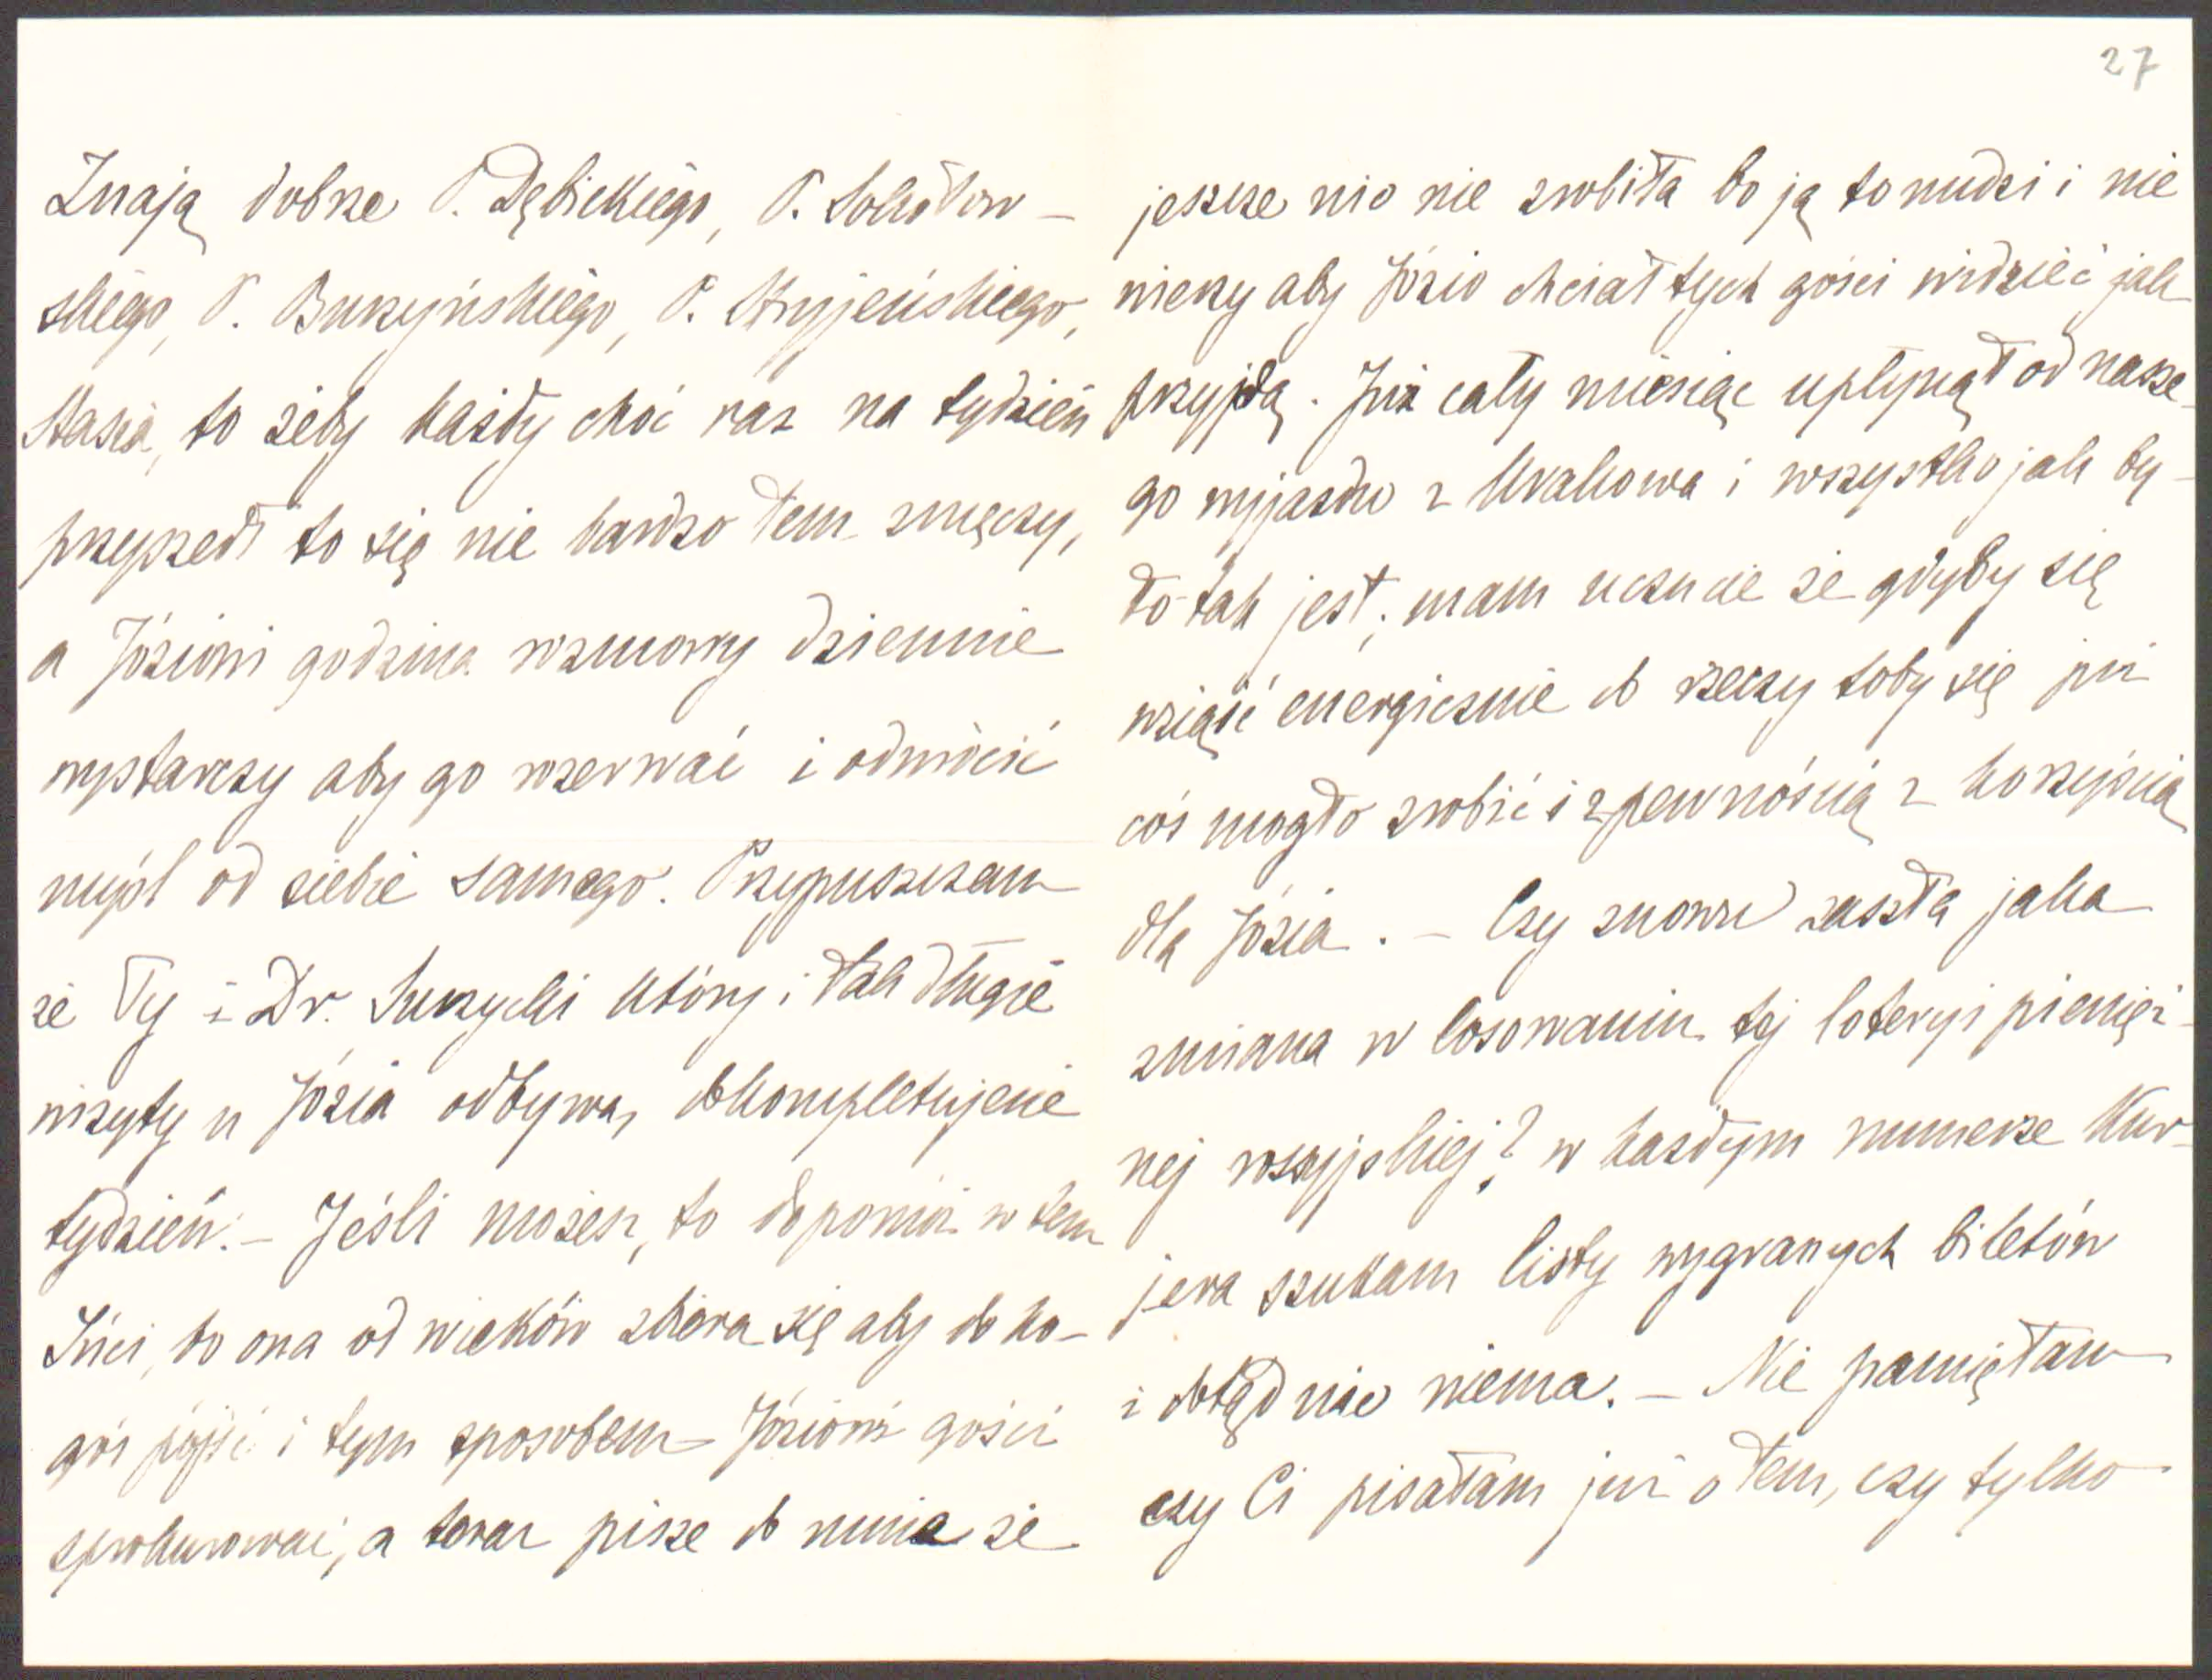 Znają dobrze P. Dębickiego, P. Sokołow-
skiego, P. Buszyńskiego, P. Stryjeńskiego,
Stasia, to żeby każdy choć raz na tydzień
przyszedł to się nie bardzo tem zmęczy,
a Józiowi godzina rozmowy dziennie
wystarczy aby go rozerwać i odwrócić
myśl od siebie samego. Przypuszczam
że Ty i Dr. Surzycki który i tak długie
wizyty u Józia odbywa, dokompletujecie
tydzień. – Jeśli możesz, to dopomóż w tem
Inci, bo ona od wieków zbiera się aby do ko-
goś pójść i tym sposobem Józiowi gości
sprokurować, a teraz pisze do mnie że
27
jeszcze nic nie zrobiła bo ją to nudzi i nie
wierzy aby Józio chciał tych gości widzieć jak
przyjdą. Już cały miesiąc upłynął od nasze-
go wyjazdu z Krakowa i wszystko jak by-
ło tak jest; mam uczucie że gdyby się
wziąść energicznie do rzeczy toby się już
coś mogło zrobić i z pewnością z korzyścią
dla Józia. – Czy znowu zaszła jaka
zmiana w losowaniu tej loteryi pienięż-
nej rossyjskiej? w każdym numerze Kur-
jera szukam listy wygranych biletów
i dotąd nic niema. – Nie pamiętam
czy Ci pisałam już o tem, czy tylko